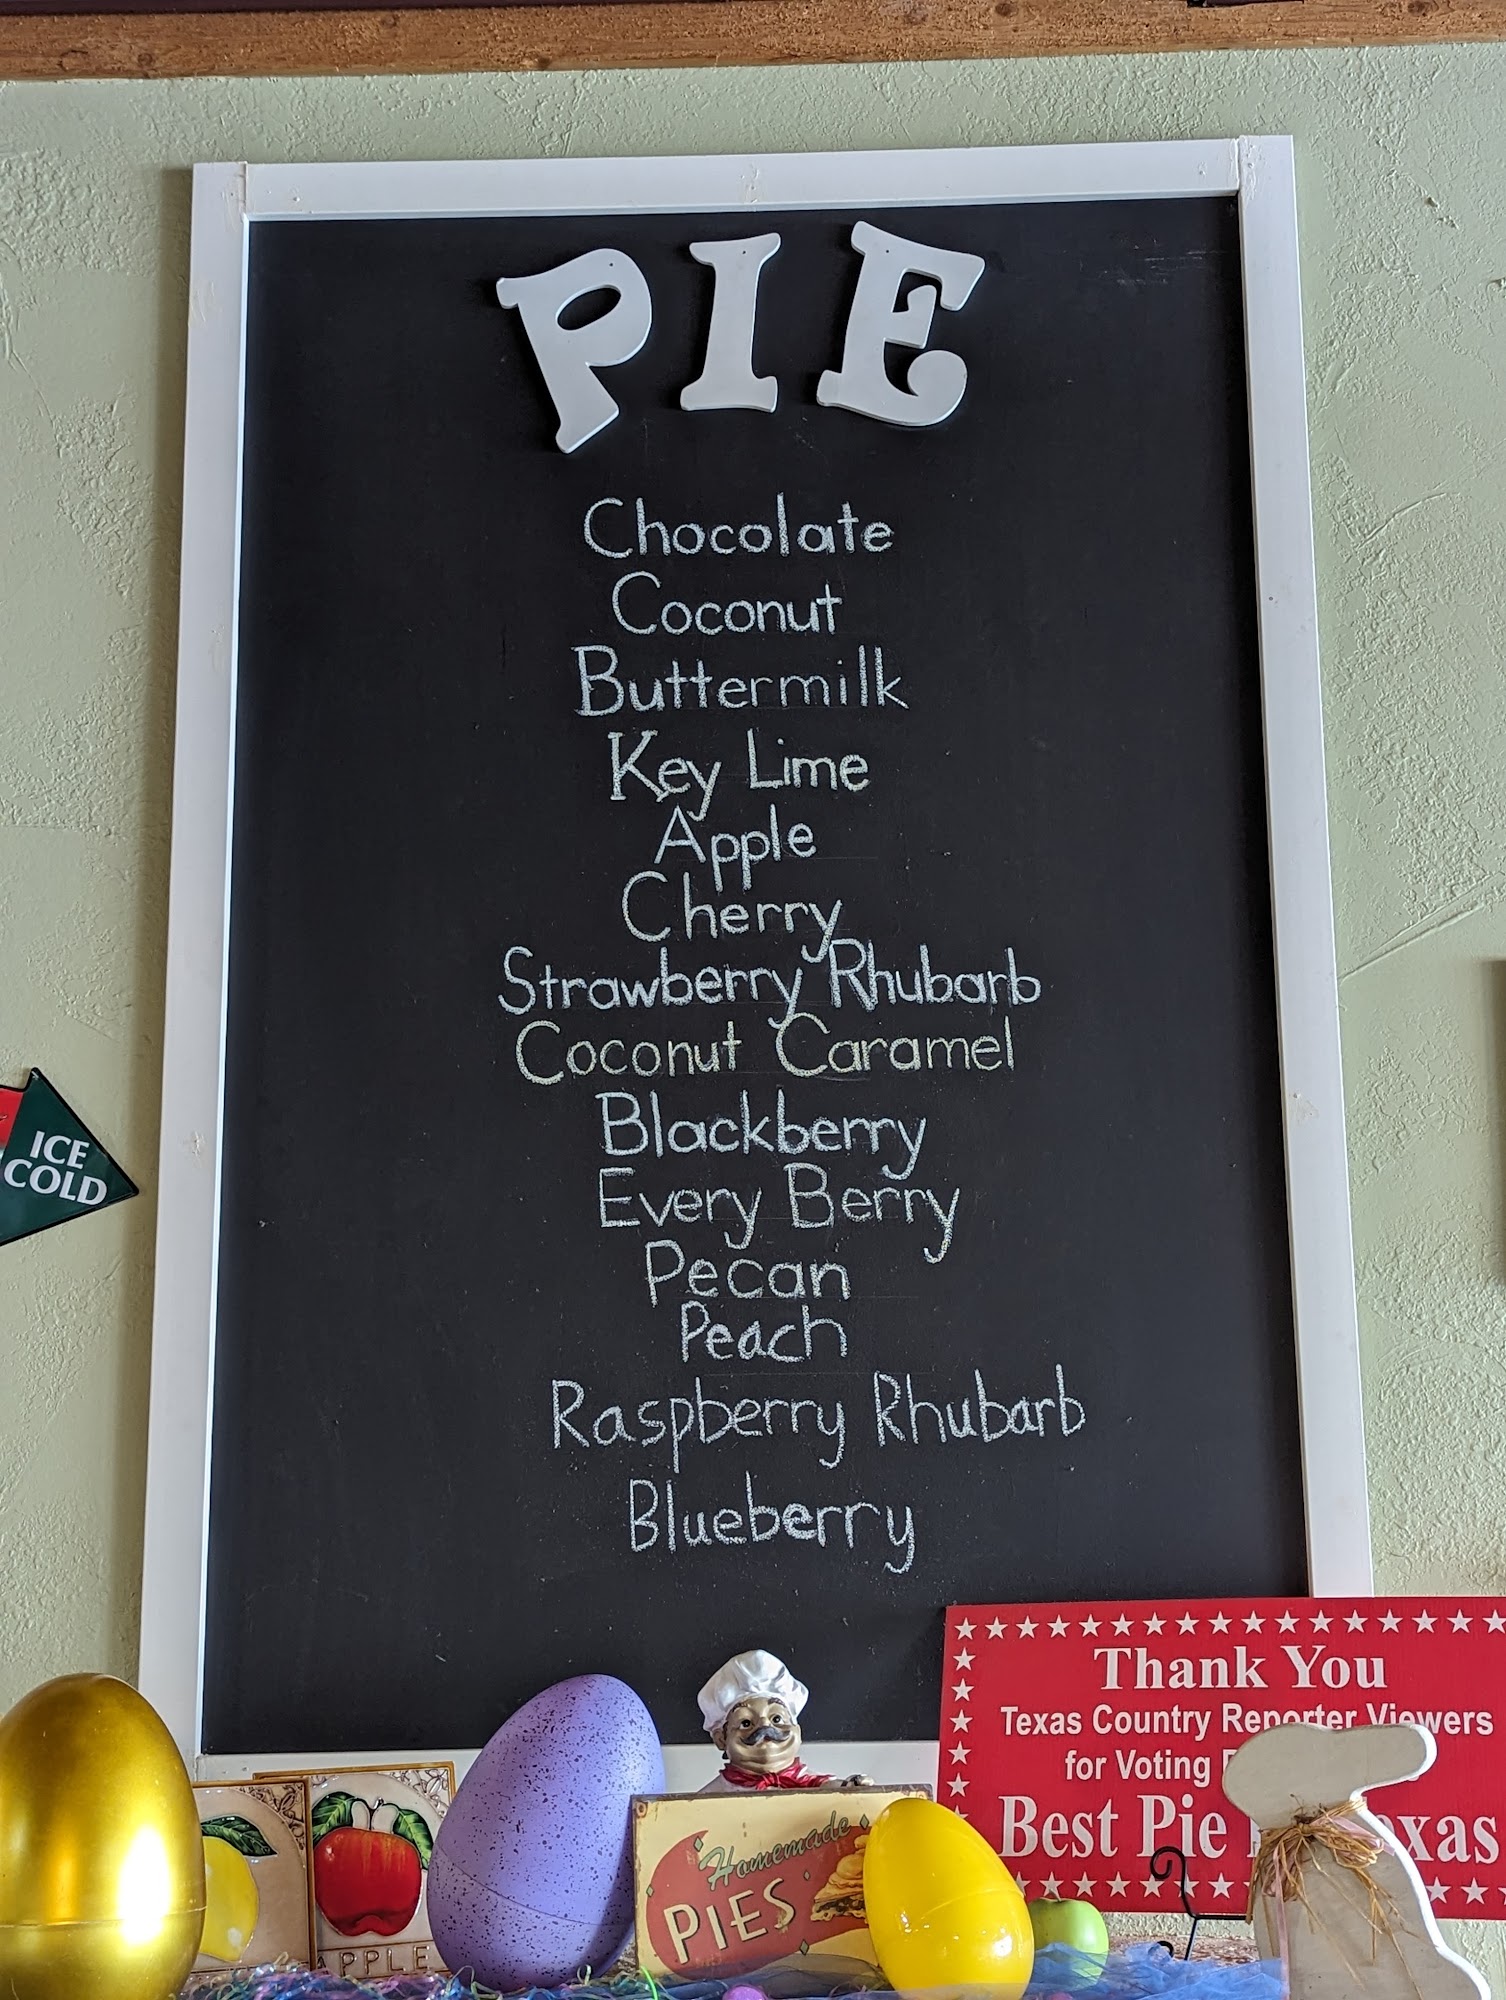 PIE
Chocolate
Coconut
Buttermilk
Key Lime
Apple
Cherry
Strawberry Rhubarb
Coconut Caramel
Blackberry
Every Berry
Pecan
Peach
Raspberry Rhubarb
Blueberry
ICE
COLD
Thank You
Texas Country Reporter Viewers
for Voting
Best Pie
Homemade
PIES
APPLE